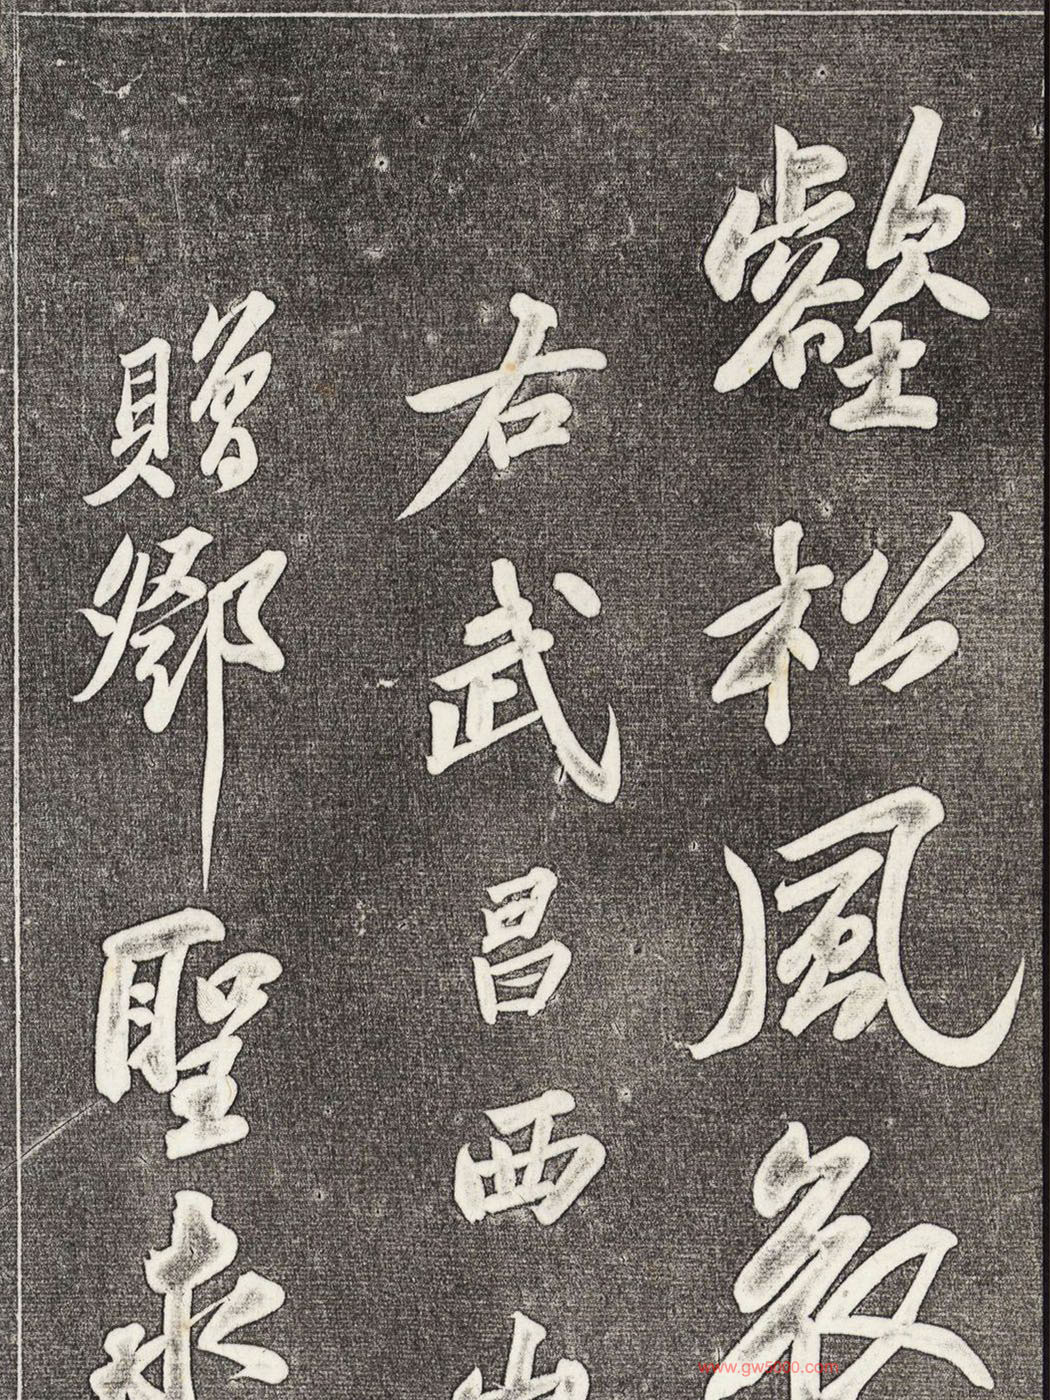 壑松風哀
右武昌西山
贈鄧聖求
www.gw5000.com